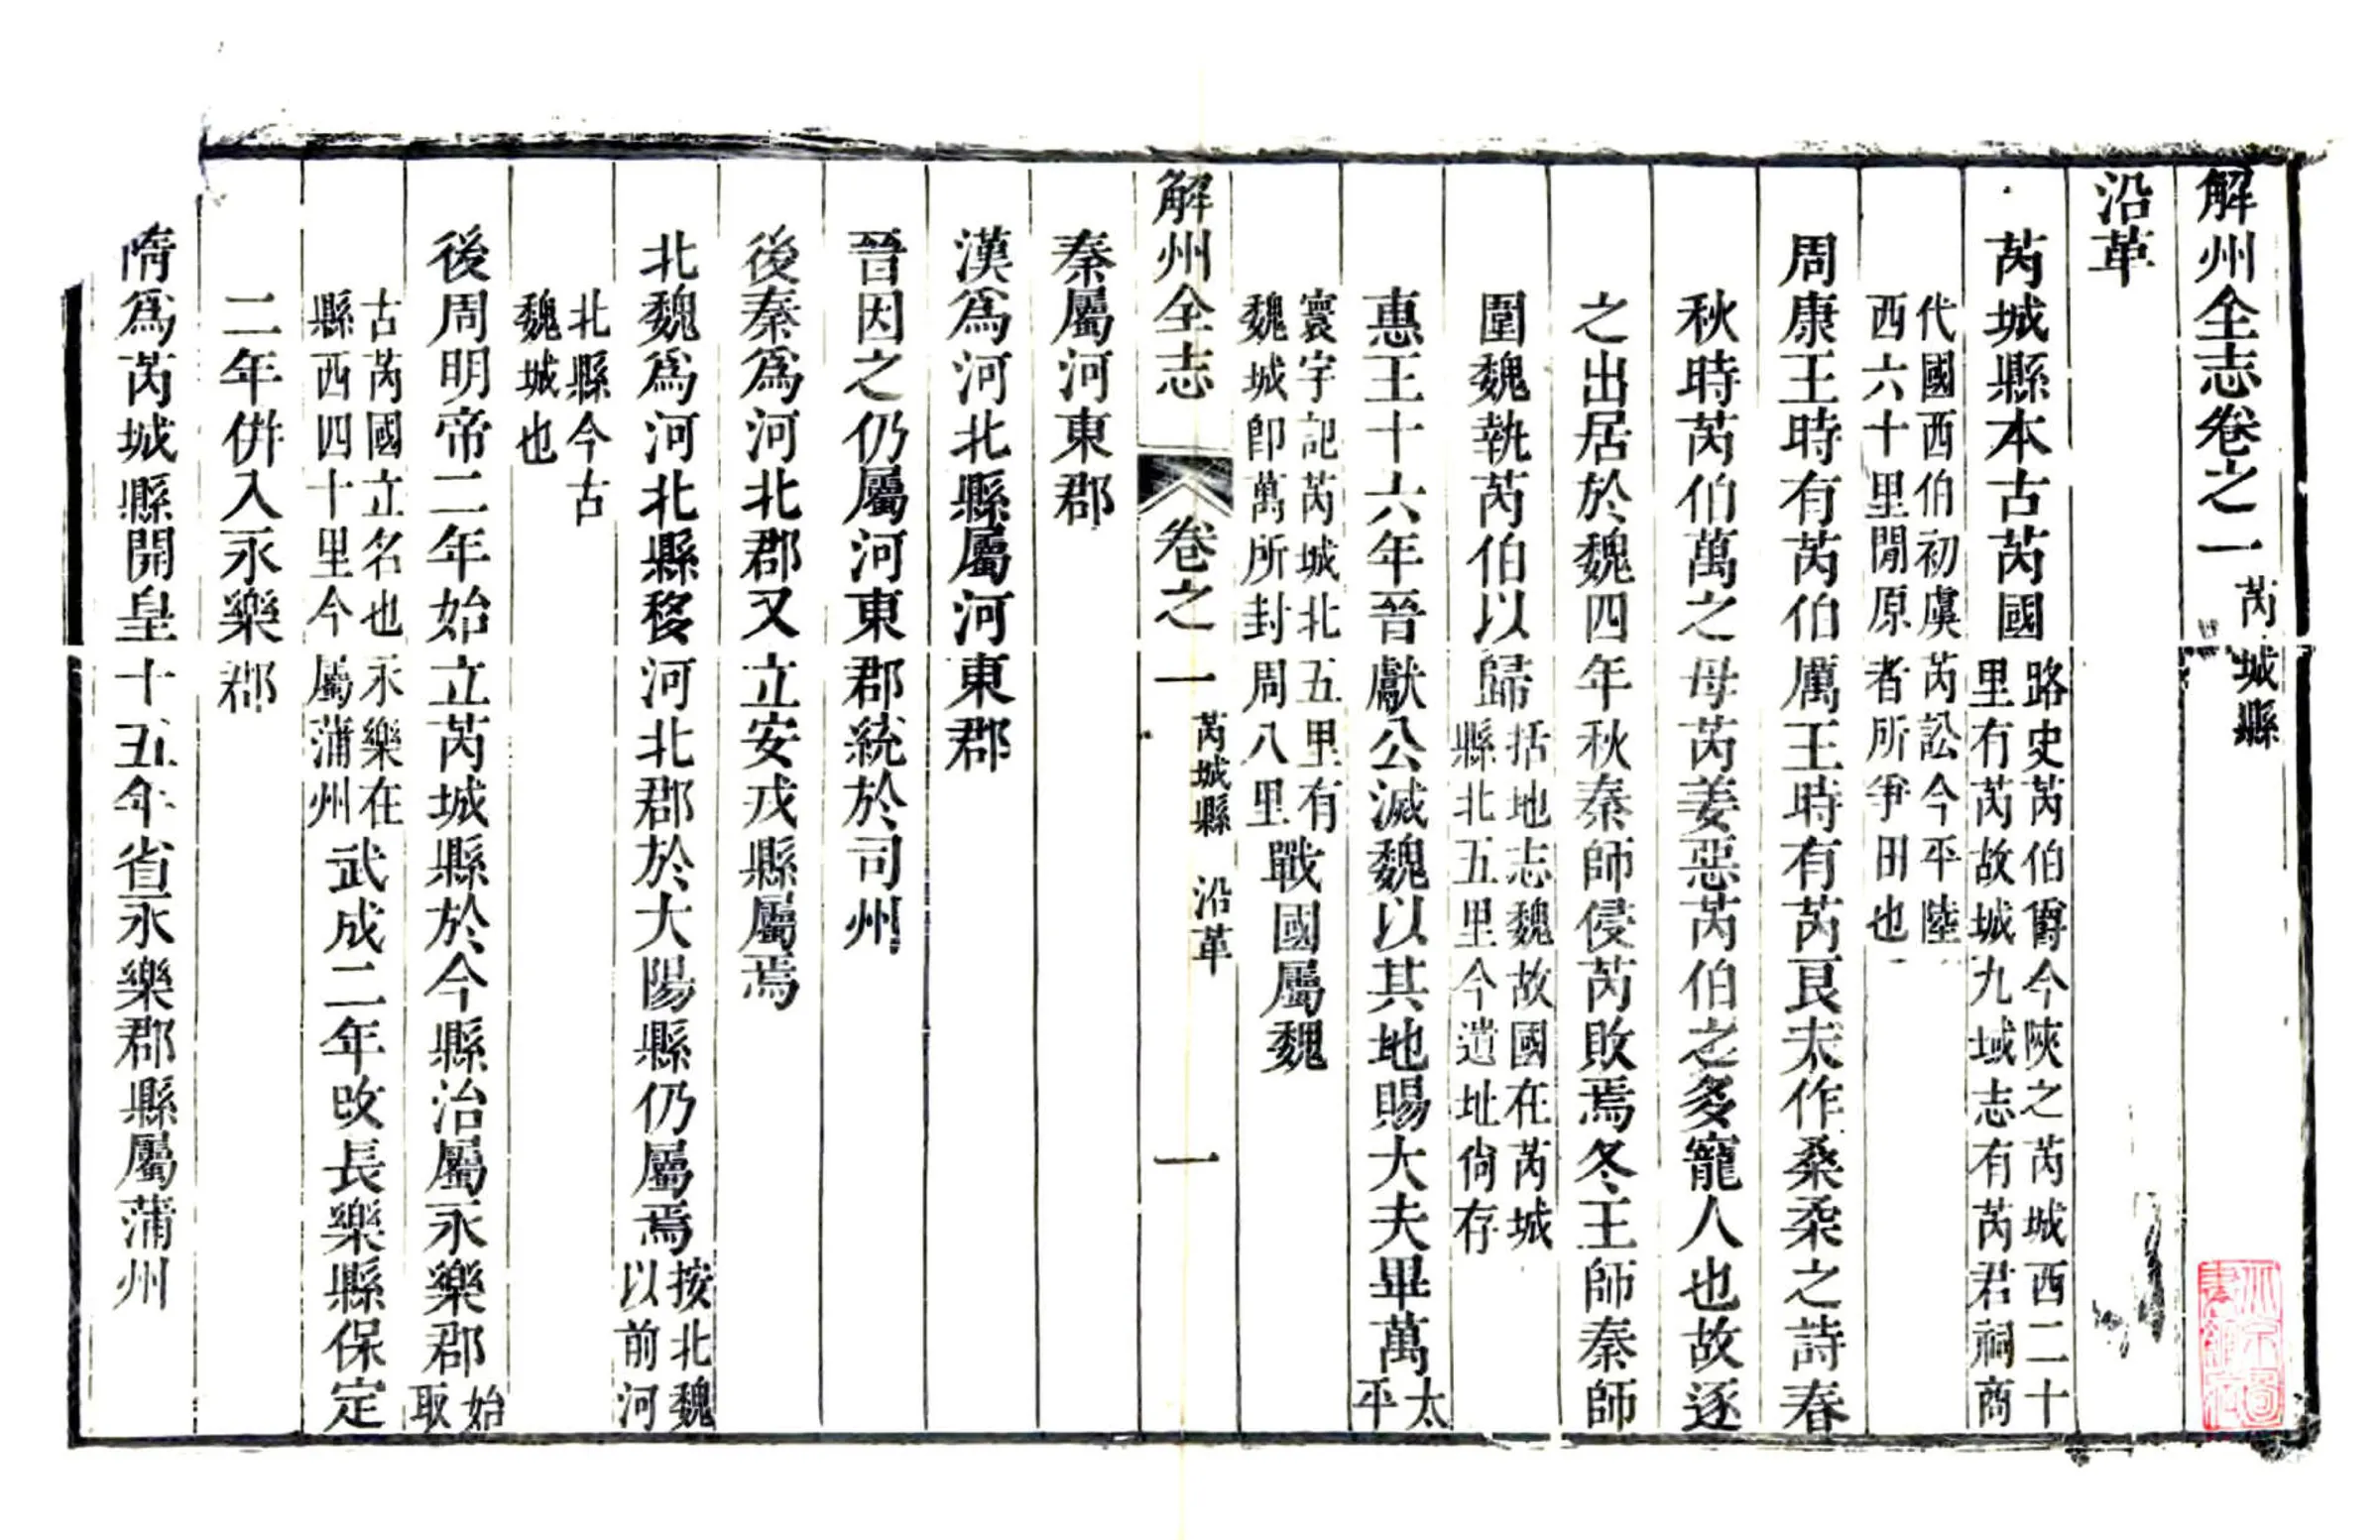 解州全志卷之一芮城縣
沿革
芮城縣本古芮國路史芮伯爵今陝之芮城西二十
里有芮故城九域志有芮君祠商
代國西伯初虞芮訟今平陸
西六十里閒原者所爭田也
周康王時有芮伯厲王時有芮良夫作桑柔之詩春
秋時芮伯萬之母芮姜惡芮伯之多寵人也故逐
之出居於魏四年秋秦師侵芮敗焉冬王師秦師
圍魏執芮伯以歸括地志魏故國在芮城
縣北五里今遺址尙存
惠王十六年晉獻公滅魏以其地賜大夫畢萬太
平
寰宇記芮城北五里有
魏城卽萬所封周八里戰國屬魏
解州全志 卷之一 芮城縣 沿革 一
秦屬河東郡
漢爲河北縣屬河東郡
晉因之仍屬河東郡統於司州
後秦爲河北郡又立安戎縣屬焉
北魏爲河北縣移河北郡於大陽縣仍屬焉按北魏
以前河
北縣今古
魏城也
後周明帝二年始立芮城縣於今縣治屬永樂郡始
取
古芮國立名也永樂在
縣西四十里今屬蒲州武成二年改長樂縣保定
二年併入永樂郡
隋爲芮城縣開皇十五年省永樂郡縣屬蒲州